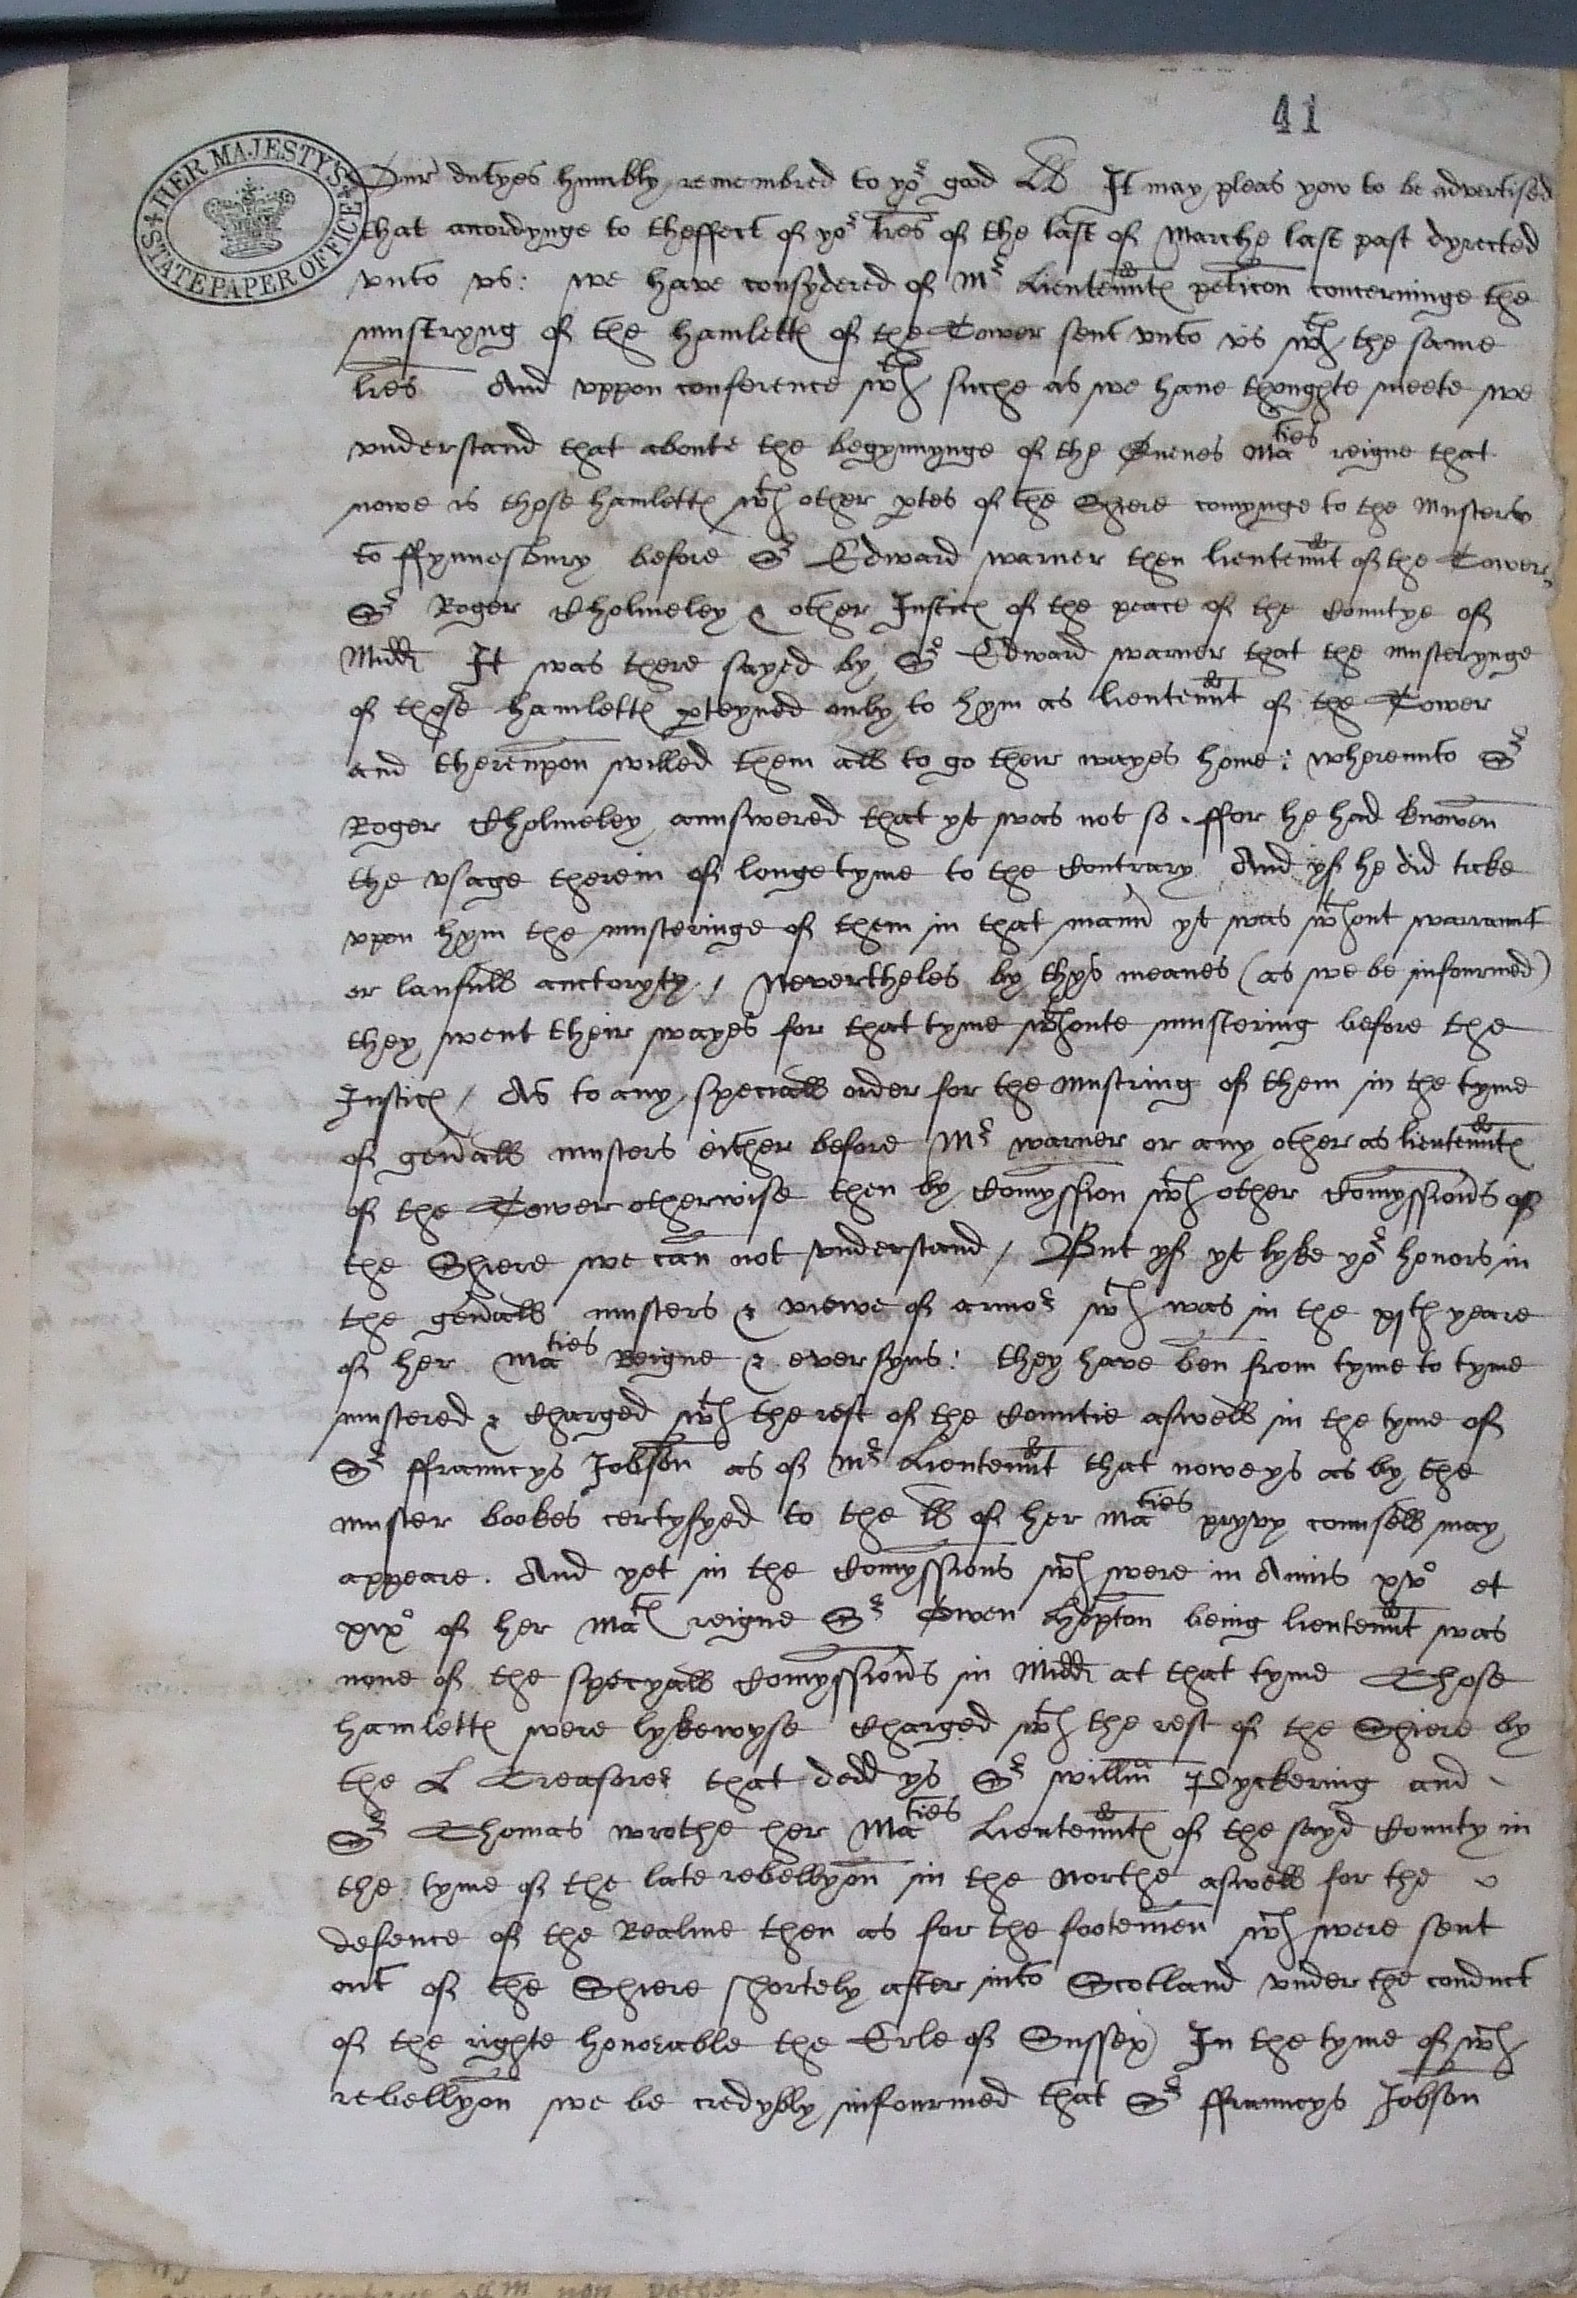 41
HER MAJESTY'S STATE PAPER OFFICE
Our dutyes humbly remembred to yor good LL It may pleas yow to be advertised
that acordynge to theffect of yor lres of the last of Marche last past dyrected
vnto vs: we have consydered of Mr Lieutenntes peticon concerninge the
mustryng of the hamlettes of the Tower sent vnto vs wth the same
lres And vppon conference wth suche as we haue thoughte meete we
vnderstand that aboute the begynnynge of the Quenes Maties reigne that
nowe is those hamlettes wth other ptes of the Shiere comynge to the Musters
to ffynnesbury before Sr Edward warner then lieutennt of the Tower
Sr Roger Cholmeley & other Justices of the peace of the Countye of
Midd It was there sayed by Sr Edward warner that the musterynge
of those hamlettes pteyned only to hym as lieutennt of the Tower
and therevpon willed them all to go their wayes home: wherevnto Sr
Roger Cholmeley aunswered that yt was not so. ffor he had knowen
the vsage therein of longe tyme to the Contrary And yf he did take
vpon hym the musteringe of them in that mannr yt was wthout warrannt
or laufull auctoryty / Nevertheles by thys meanes (as we be infourmed)
they went their wayes for that tyme wthoute mustering before the
Justices / As to any speciall order for the Mustring of them in the tyme
of genall musters either before Mr warner or any other as lieutenntes
of the Tower otherwise then by Comyssion wth other Comyssionrs of
the Shiere we can not vnderstand / But yf yt lyke yor honors in
the genall musters & viewe of armor wch was in the xjth yeare
of her Maties Reigne & ever syns: they have ben from tyme to tyme
mustered & Charged wth the rest of the Countie aswell in the tyme of
Sr ffrauncys Jobson as of Mr Lieutennt that nowe ys as by the
muster bookes certyfyed to the LL of her Maties pryvy counsell may
appeare. And yet in the Comyssions wch were in Annis xvo et
xixo of her Mates reigne Sr Owen Hopton being lieutennt was
none of the specyall Comyssionrs in Midd at that tyme Those
hamlettes were lykewyse Charged wth the rest of the Shiere by
the L Treasorer that dedd ys Sr Willm Pyckering and
Sr Thomas wrothe her Maties Lieutenntes of the sayd County in
the tyme of the late rebellyon in the Northe aswell for the
defence of the Realme then as for the footemen wch were sent
out of the Shiere shortely after into Scotland vnder the conduct
of the righte honorable the Erle of Sussex) In the tyme of wch
rebellyon we be credybly infourmed that Sr ffrauncys Jobson